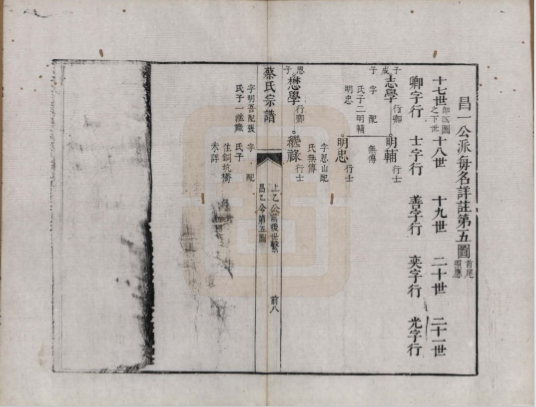 昌一公派每名詳註第五圖
十七世 十八世 十九世 二十世 二十一世
卿字行 士字行 善字行 奕字行 光字行
志學 行卿 明輔 行士
子 字 配 無傳
氏子二明輔
明忠 明忠 行士
字思山配
氏無傳
懋學 行卿 繼祿 行士
字明吾配張 字 配
氏子一繼祿 氏子
生銅坑
未詳
蔡氏宗譜
昌乙公第五圖
前八